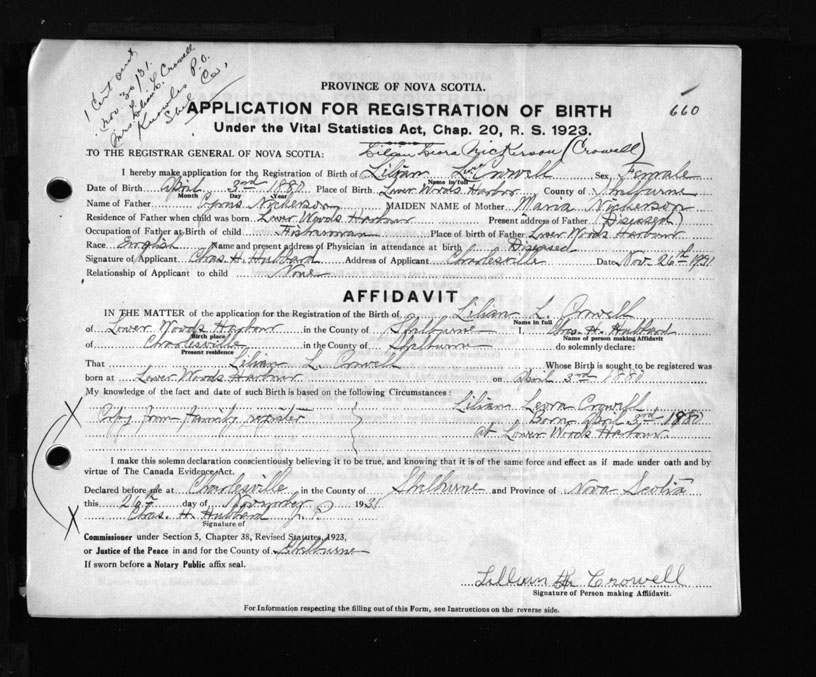 1 Cert out
Nov 30/31.
Mrs. Lilian L. Crowell
Knowles P.O.
Shel. Co.,
PROVINCE OF NOVA SCOTIA.
APPLICATION FOR REGISTRATION OF BIRTH
660
Under the Vital Statistics Act, Chap. 20, R. S. 1923.
TO THE REGISTRAR GENERAL OF NOVA SCOTIA: Leora Nickerson (Crowell)
I hereby make application for the Registration of Birth of Lilian L. Crowell Sex, Female
Name in full
Date of Birth April 3rd 1880 Place of Birth Lower Woods Harbor County of Shelburne
Month Day Year
Name of Father Nickerson MAIDEN NAME of Mother Maria Nickerson
Residence of Father when child was born Lower Woods Harbour Present address of Father (Diseased)
Occupation of Father at Birth of child Fisherman Place of birth of Father Lower Woods Harbour
Race English Name and present address of Physician in attendance at birth Diseased
Signature of Applicant Chas. H. Hubbard Address of Applicant Charlesville Date Nov. 26th 1931
Relationship of Applicant to child None
AFFIDAVIT
IN THE MATTER of the application for the Registration of the Birth of Lilian L. Crowell
Name in full
of Lower Woods Harbour in the County of Shelburne I, Chas. H. Hubbard
Birth place Name of person making Affidavit
of Charlesville in the County of Shelburne do solemnly declare:
Present residence
That Lilian L. Crowell Whose Birth is sought to be registered was
born at Lower Woods Harbour on April 3rd 1880
My knowledge of the fact and date of such Birth is based on the following Circumstances: Lilian Leora Crowell
X Copy from family register Born April 3rd 1880
at Lower Woods Harbour.
I make this solemn declaration conscientiously believing it to be true, and knowing that it is of the same force and effect as if made under oath and by
virtue of The Canada Evidence Act.
Declared before me at Charlesville in the County of Shelburne and Province of Nova Scotia
this 26th day of November 1931
X Chas. H. Hubbard J. P.
Signature of
Commissioner under Section 5, Chapter 38, Revised Statutes, 1923,
or Justice of the Peace in and for the County of Shelburne
If sworn before a Notary Public affix seal.
Lillian Crowell
Signature of Person making Affidavit.
For Information respecting the filling out of this Form, see Instructions on the reverse side.